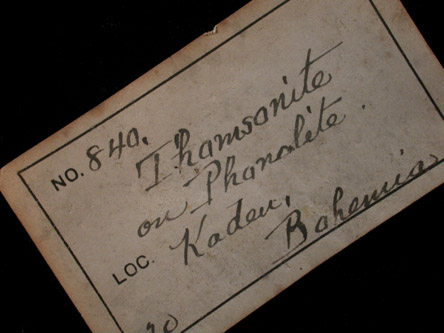 NO. 840.
Thomsonite
on Phonolite.
LOC. Kaden,
Bohemia